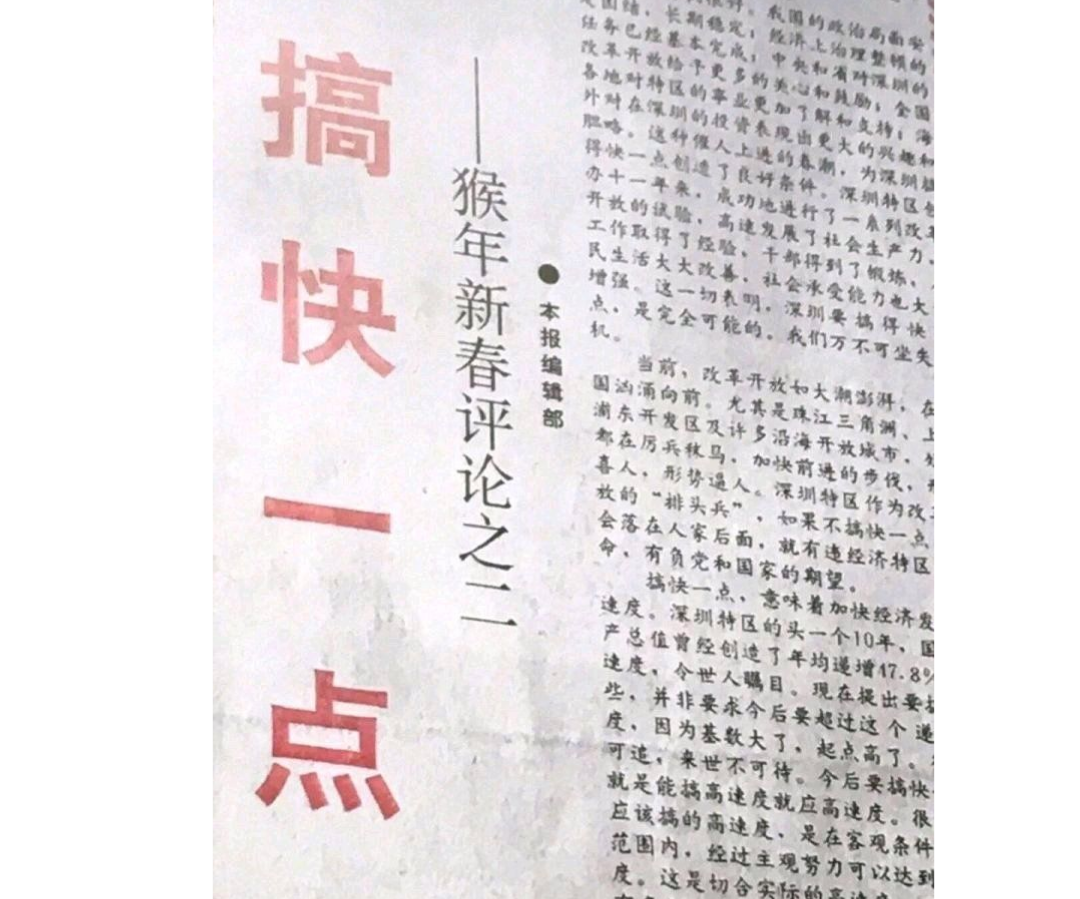 搞快一点
——猴年新春评论之二
●本报编辑部
我国的政治局面安
定团结，长期稳定；经济上治理整顿的
任务已经基本完成；中央和省对深圳的
改革开放给予更多的关心和鼓励；全国
各地对特区的事业更加了解和支持；海
外对在深圳的投资表现出更大的兴趣和
胆略。这种催人上进的春潮，为深圳搞
得快一点创造了良好条件。深圳特区创
办十一年来，成功地进行了一系列改革
开放的试验，高速发展了社会生产力，
工作取得了经验，干部得到了锻炼，
民生活大大改善，社会承受能力也大
增强。这一切表明，深圳要搞得快
点，是完全可能的。我们万不可坐失
机。
当前，改革开放如大潮澎湃，在
国汹涌向前。尤其是珠江三角洲、上
浦东开发区及许多沿海开放城市，
都在厉兵秣马，加快前进的步伐，
喜人，形势逼人。深圳特区作为改
放的“排头兵”，如果不搞快一点
会落在人家后面，就有违经济特区
命，有负党和国家的期望。
搞快一点，意味着加快经济发
速度。深圳特区的头一个10年，国
产总值曾经创造了年均递增47.8%
速度，令世人瞩目。现在提出要搞
些，并非要求今后要超过这个递
度，因为基数大了，起点高了。
可追，来世不可待。今后要搞快
就是能搞高速度就应高速度。很
应该搞的高速度，是在客观条件
范围内，经过主观努力可以达到
度。这是切合实际的高速度